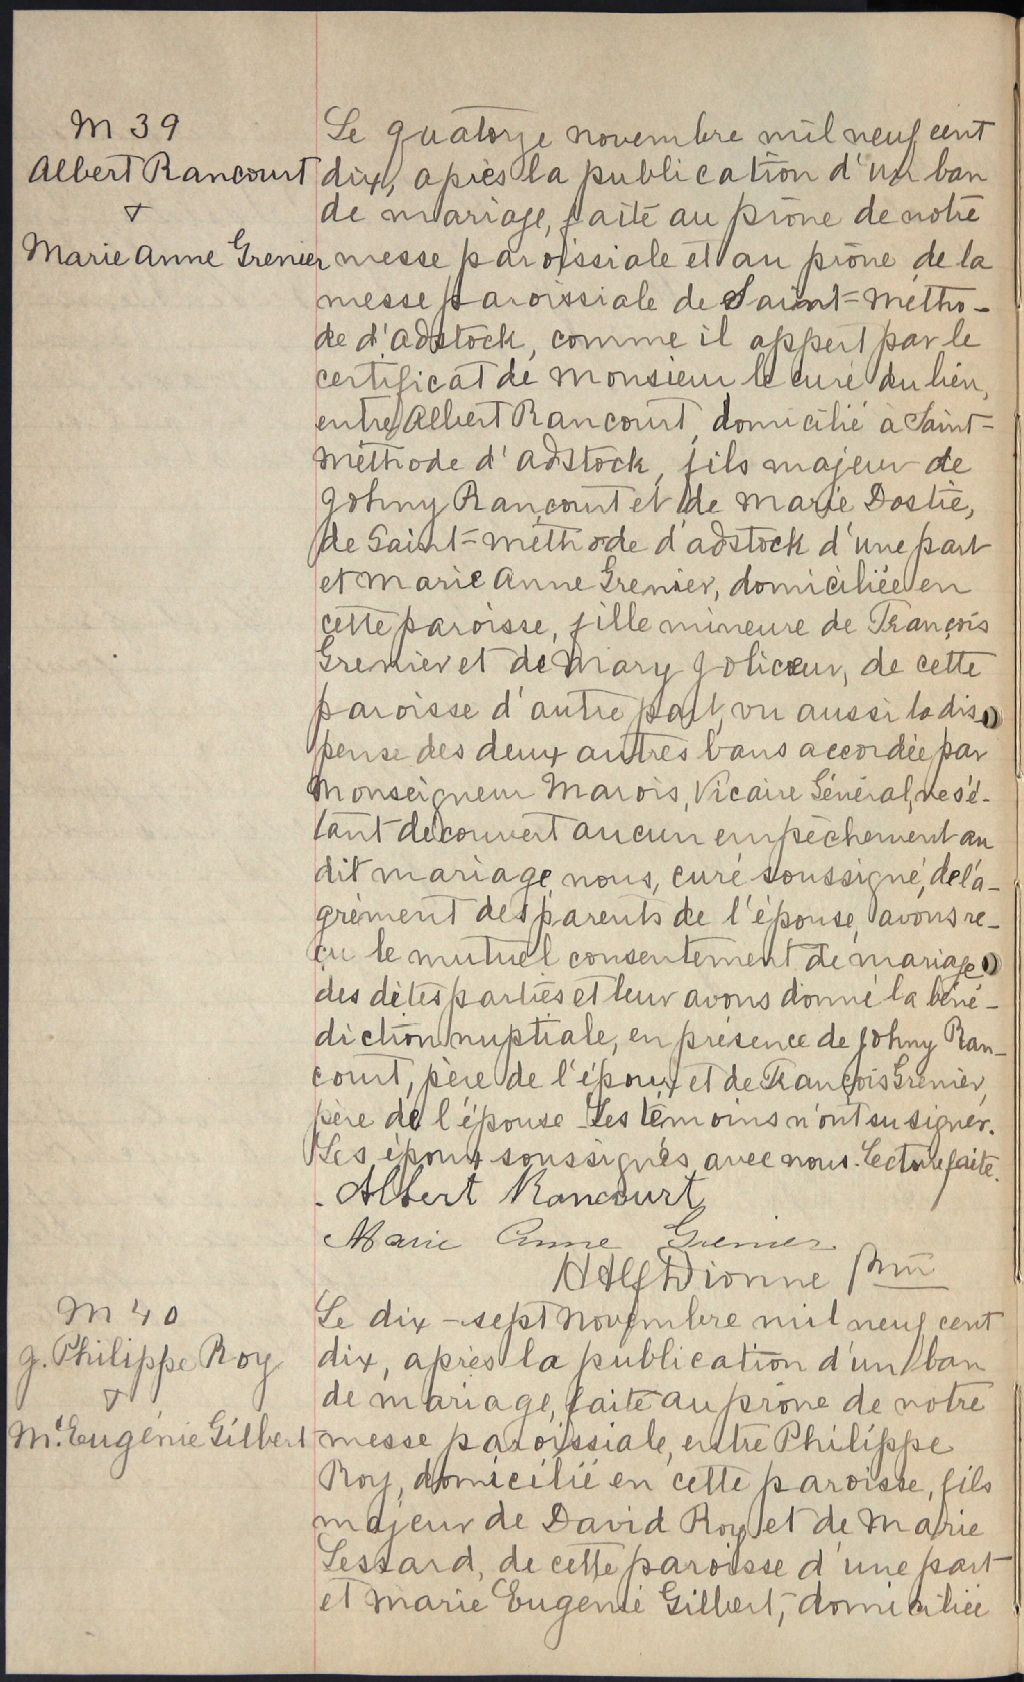 M 39
Albert Rancourt
&
Marie Anne Grenier
Le quatorze novembre mil neuf cent
dix, après la publication d'un ban
de mariage, faite au prône de notre
messe paroissiale et au prône de la
messe paroissiale de Saint-Métho-
de d'Adstock, comme il appert par le
certificat de Monsieur le curé du lieu,
entre Albert Rancourt, domicilié à Saint-
Méthode d'Adstock, fils majeur de
Johny Rancourt et de Marie Dostie,
de Saint-Méthode d'Adstock d'une part
et Marie Anne Grenier, domiciliée en
cette paroisse, fille mineure de François
Grenier et de Mary Jolicœur, de cette
paroisse d'autre part, vu aussi la dis-
pense des deux autres bans accordée par
Monseigneur Marois, Vicaire Général, ne s'é-
tant découvert aucun empêchement au
dit mariage, nous, curé soussigné, de l'a-
grément des parents de l'épouse, avons re-
çu le mutuel consentement de mariage
des dites parties et leur avons donné la béné-
diction nuptiale, en présence de Johny Ran-
court, père de l'époux et de François Grenier,
père de l'épouse. Les témoins n'ont su signer.
Les époux soussignés avec nous. Lecture faite.
Albert Rancourt
Marie Anne Grenier
H Alf Dionne Ptre
M 40
J. Philippe Roy
&
M. Eugénie Gilbert
Le dix-sept novembre mil neuf cent
dix, après la publication d'un ban
de mariage, faite au prône de notre
messe paroissiale, entre Philippe
Roy, domicilié en cette paroisse, fils
majeur de David Roy et de Marie
Lessard, de cette paroisse d'une part
et Marie Eugénie Gilbert, domiciliée